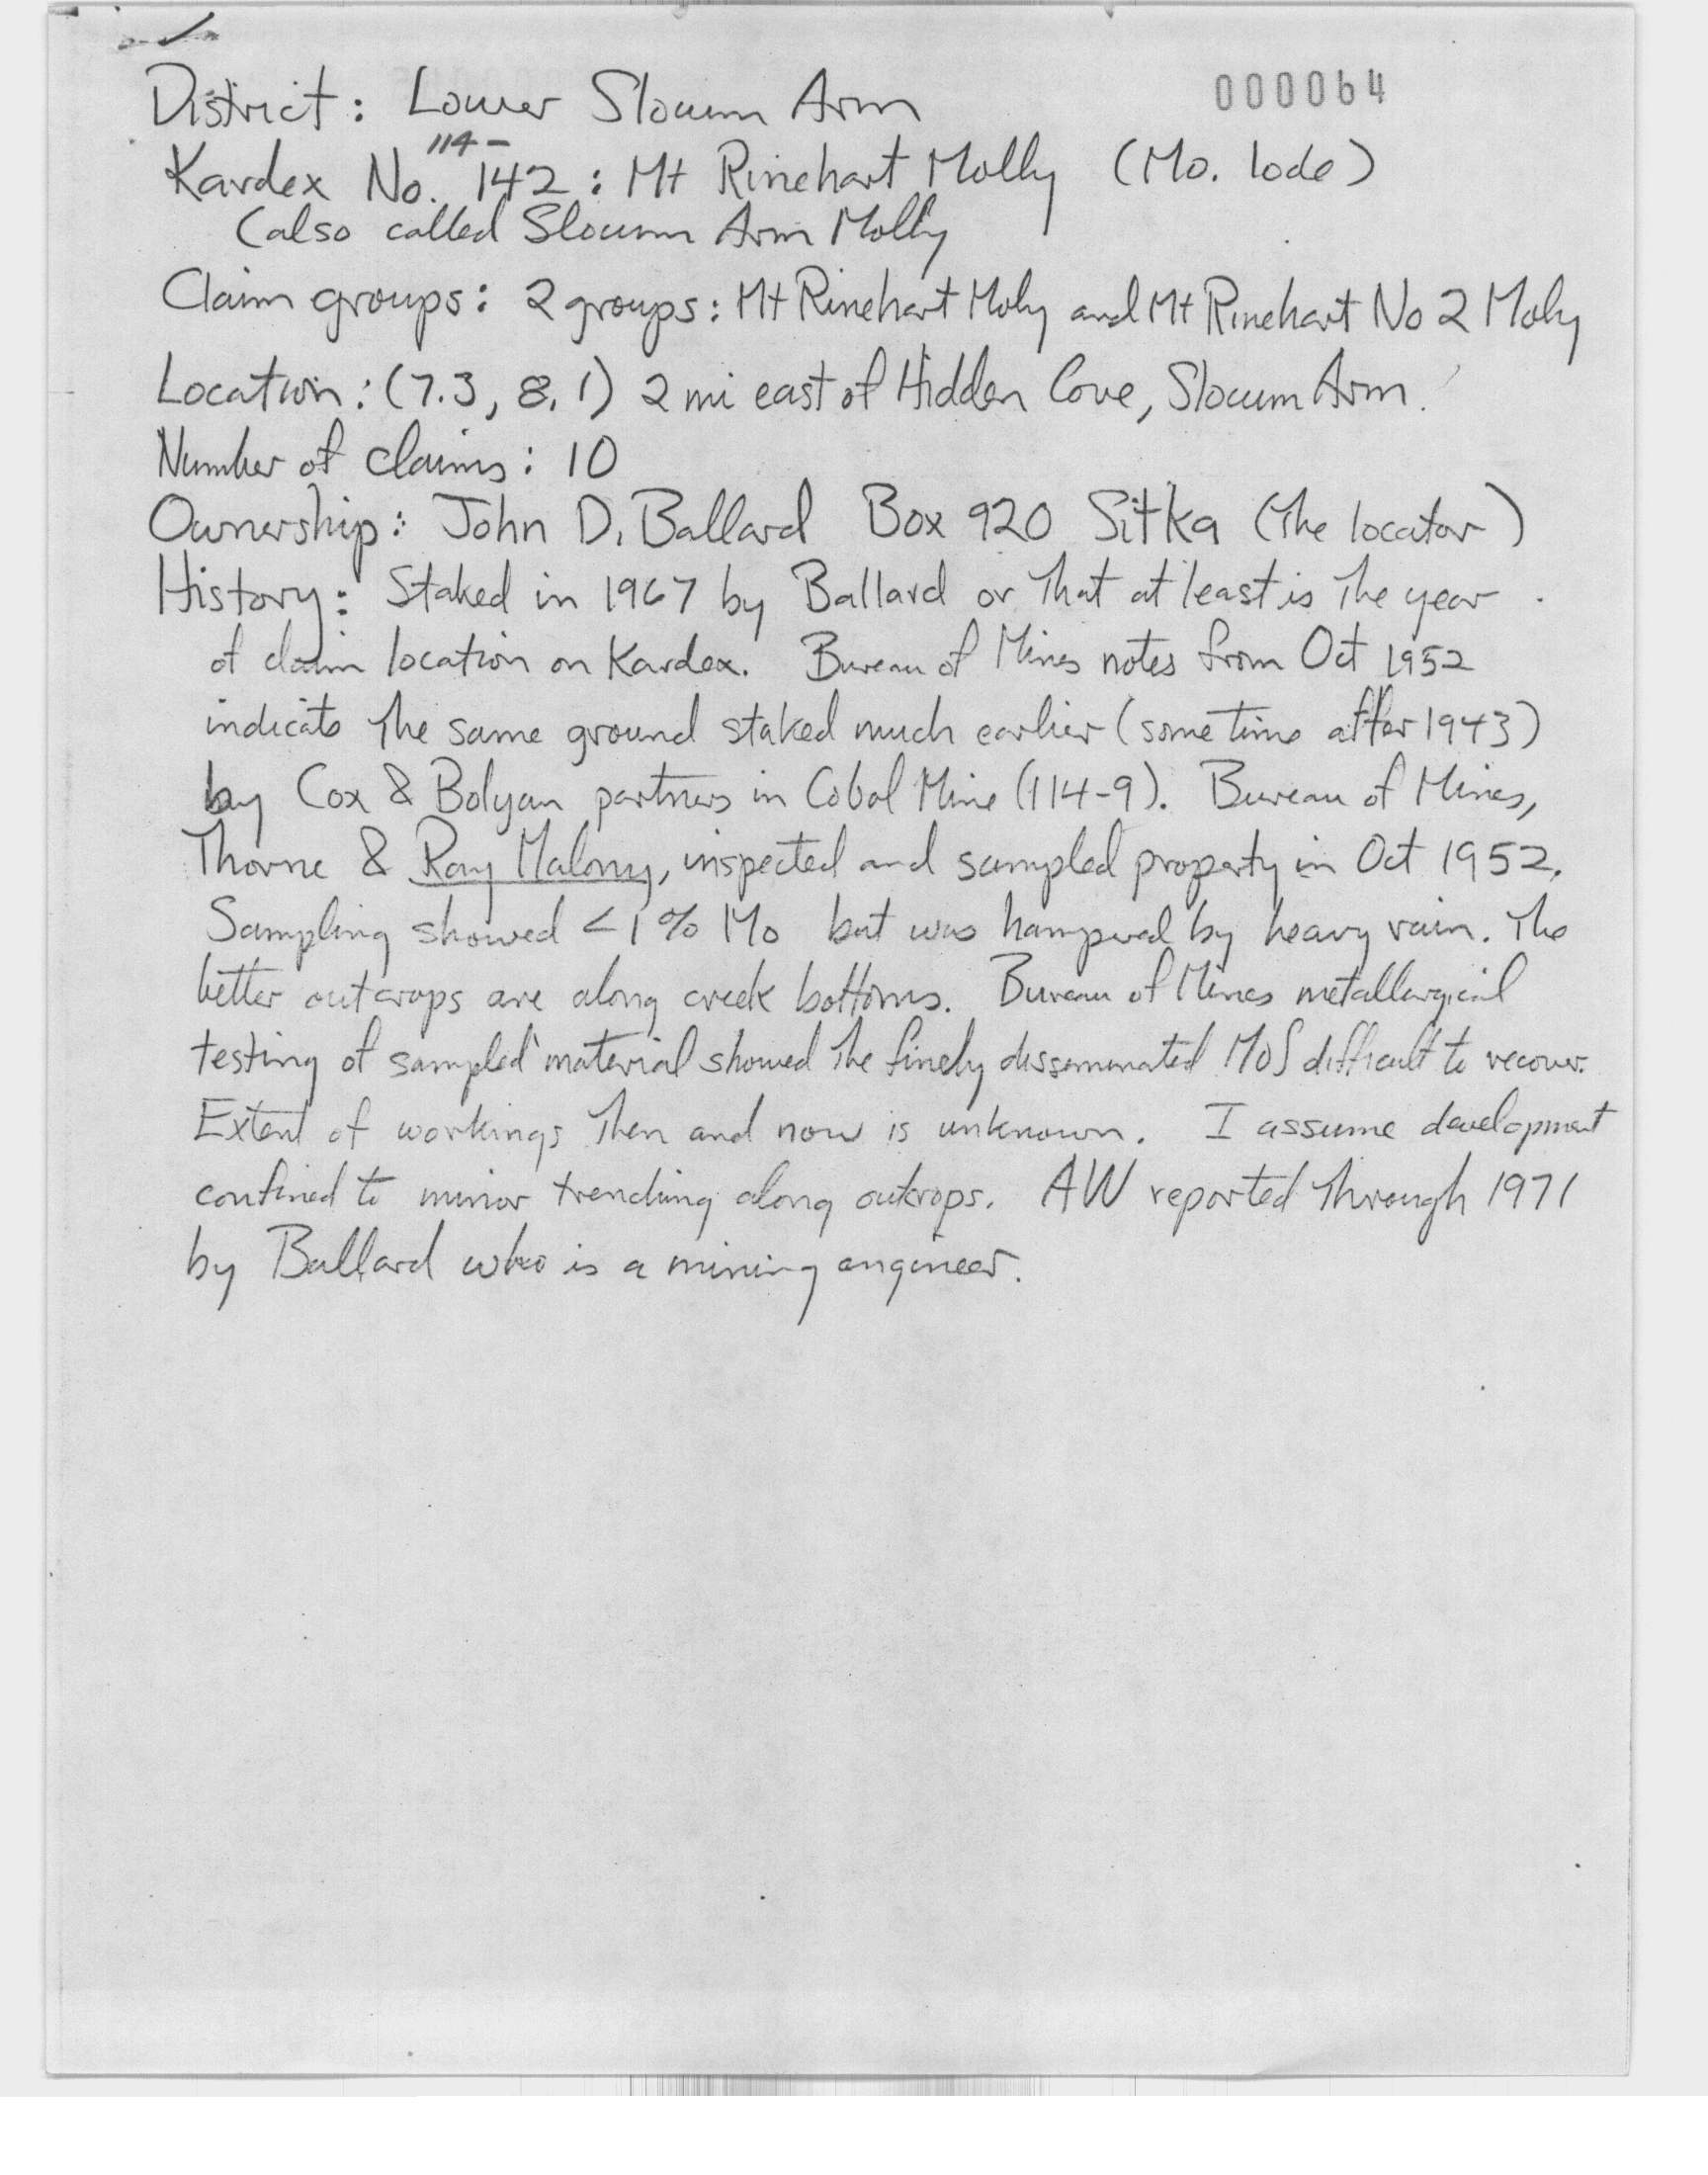 000064
District: Lower Slocum Arm
114-
Kardex No. 142: Mt Rinehart Molly (Mo. lode)
(also called Slocum Arm Molly
Claim groups: 2 groups: Mt Rinehart Moly and Mt Rinehart No 2 Moly
Location: (7.3, 8.1) 2 mi east of Hidden Cove, Slocum Arm.
Number of claims: 10
Ownership: John D. Ballard Box 920 Sitka (the locator)
History: Staked in 1967 by Ballard or that at least is the year
of claim location on Kardex. Bureau of Mines notes from Oct 1952
indicate the same ground staked much earlier (some time after 1943)
by Cox & Bolyan partners in Cobol Mine (114-9). Bureau of Mines,
Thorne & Ray Malony, inspected and sampled property in Oct 1952.
Sampling showed <1% Mo but was hampered by heavy rain. The
better outcrops are along creek bottoms. Bureau of Mines metallurgical
testing of sampled material showed the finely disseminated MoS difficult to recover.
Extent of workings then and now is unknown. I assume development
confined to minor trenching along outcrops. AW reported through 1971
by Ballard who is a mining engineer.